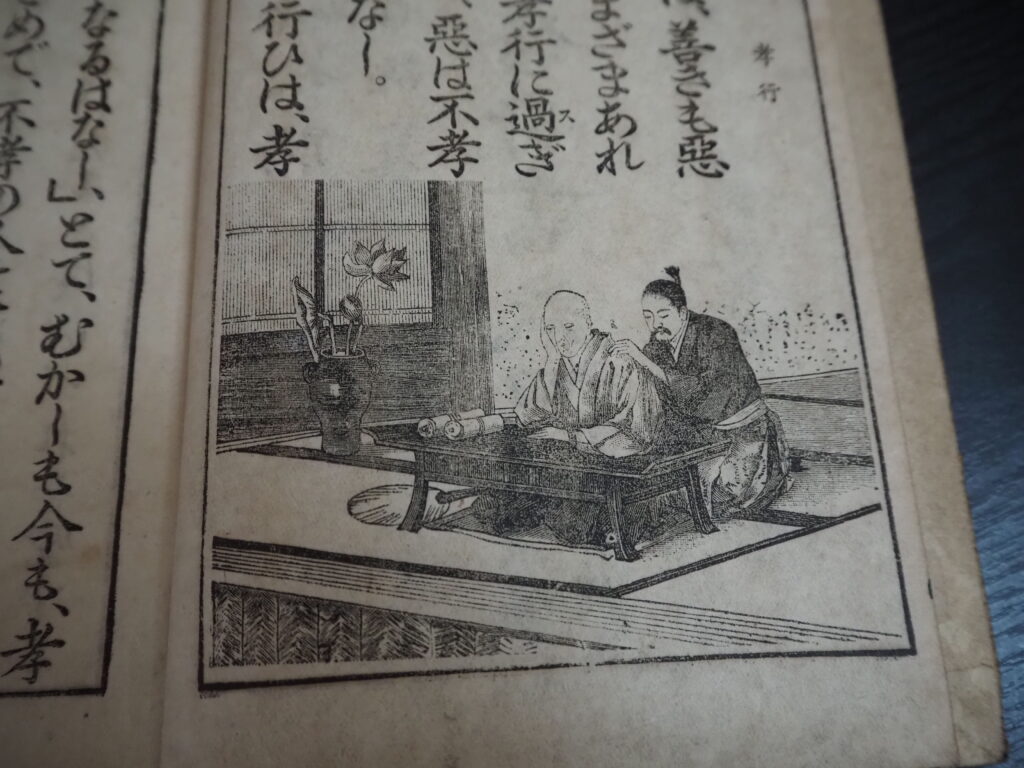 孝行
善きも惡
まざまあれ
孝行に過ぎ
ス
、惡は不孝
なし。
行ひは、孝
なるはなし」とて、むかしも今も、孝
めで、不孝の人